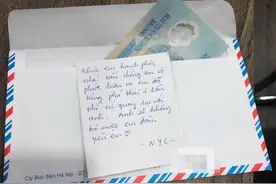 Chúc em hạnh phúc
nhé, nếu chồng em có
phát hiện ra em đã
từng phá thai 2 lần
thì cứ quay lại với
anh. Anh sẽ không
bỏ được em đâu.
yêu em ♡
- NYC -
Cty Bưu điện Hà Nội - ĐT